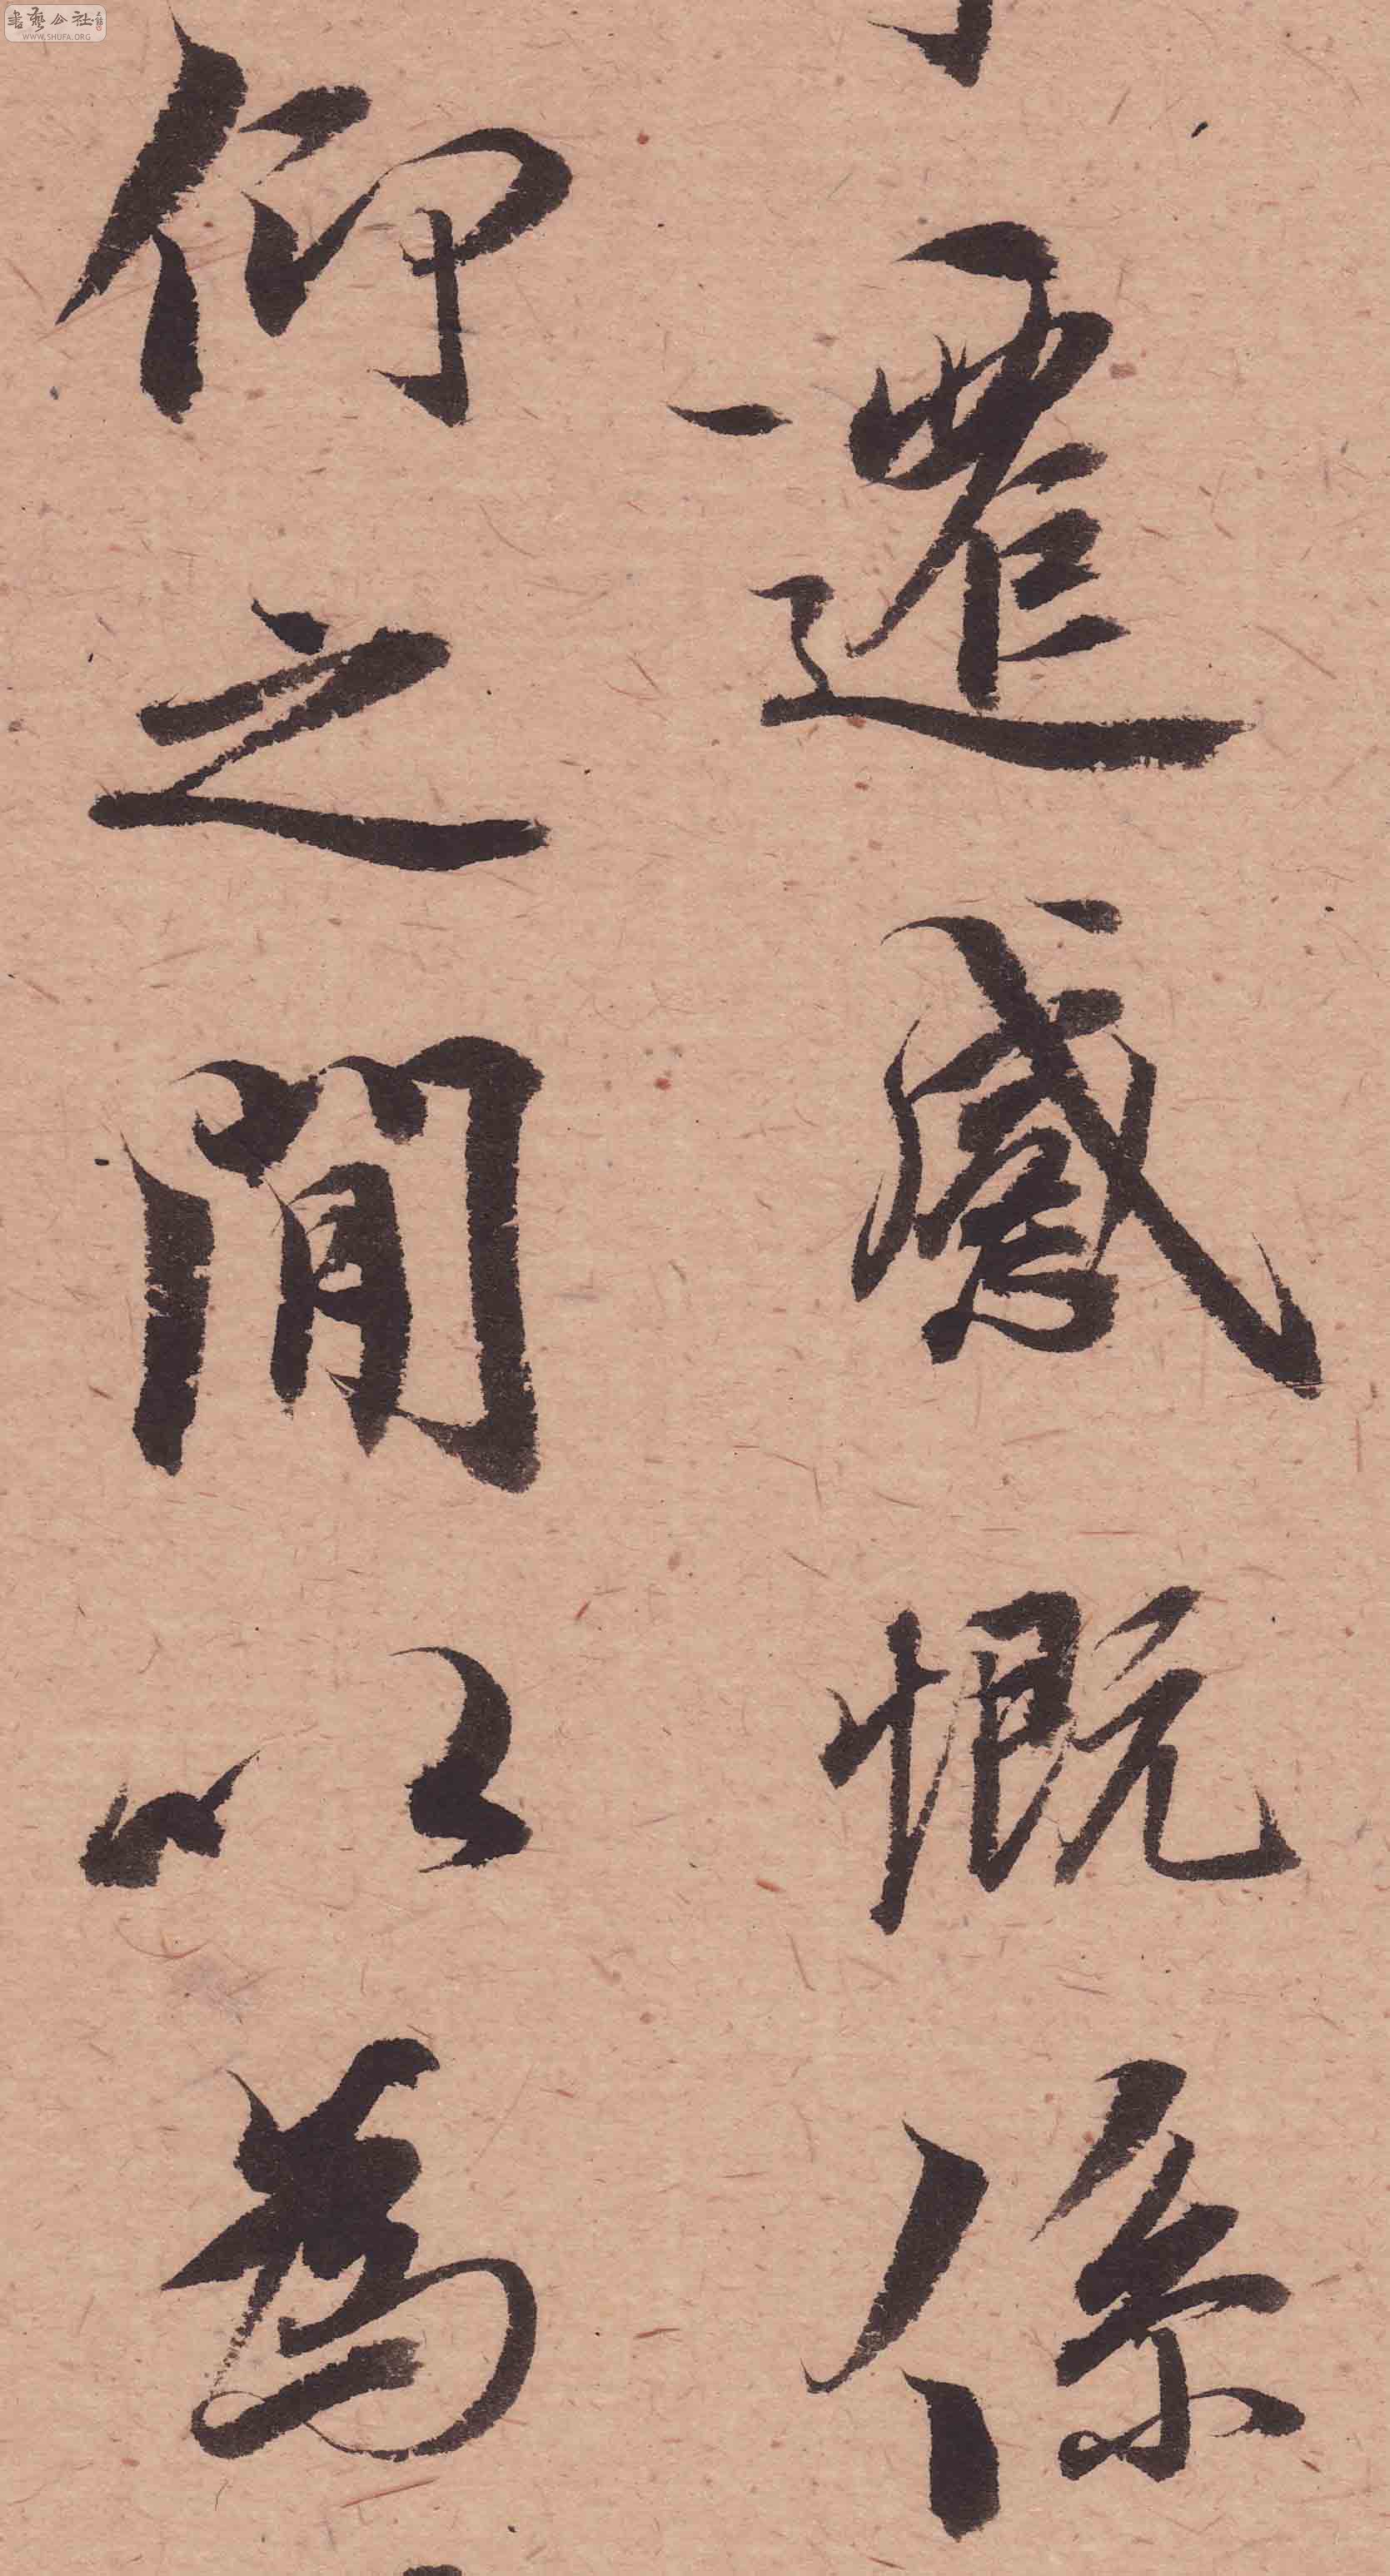 遷感慨係
仰之間以為
書藝公社
WWW.SHUFA.ORG